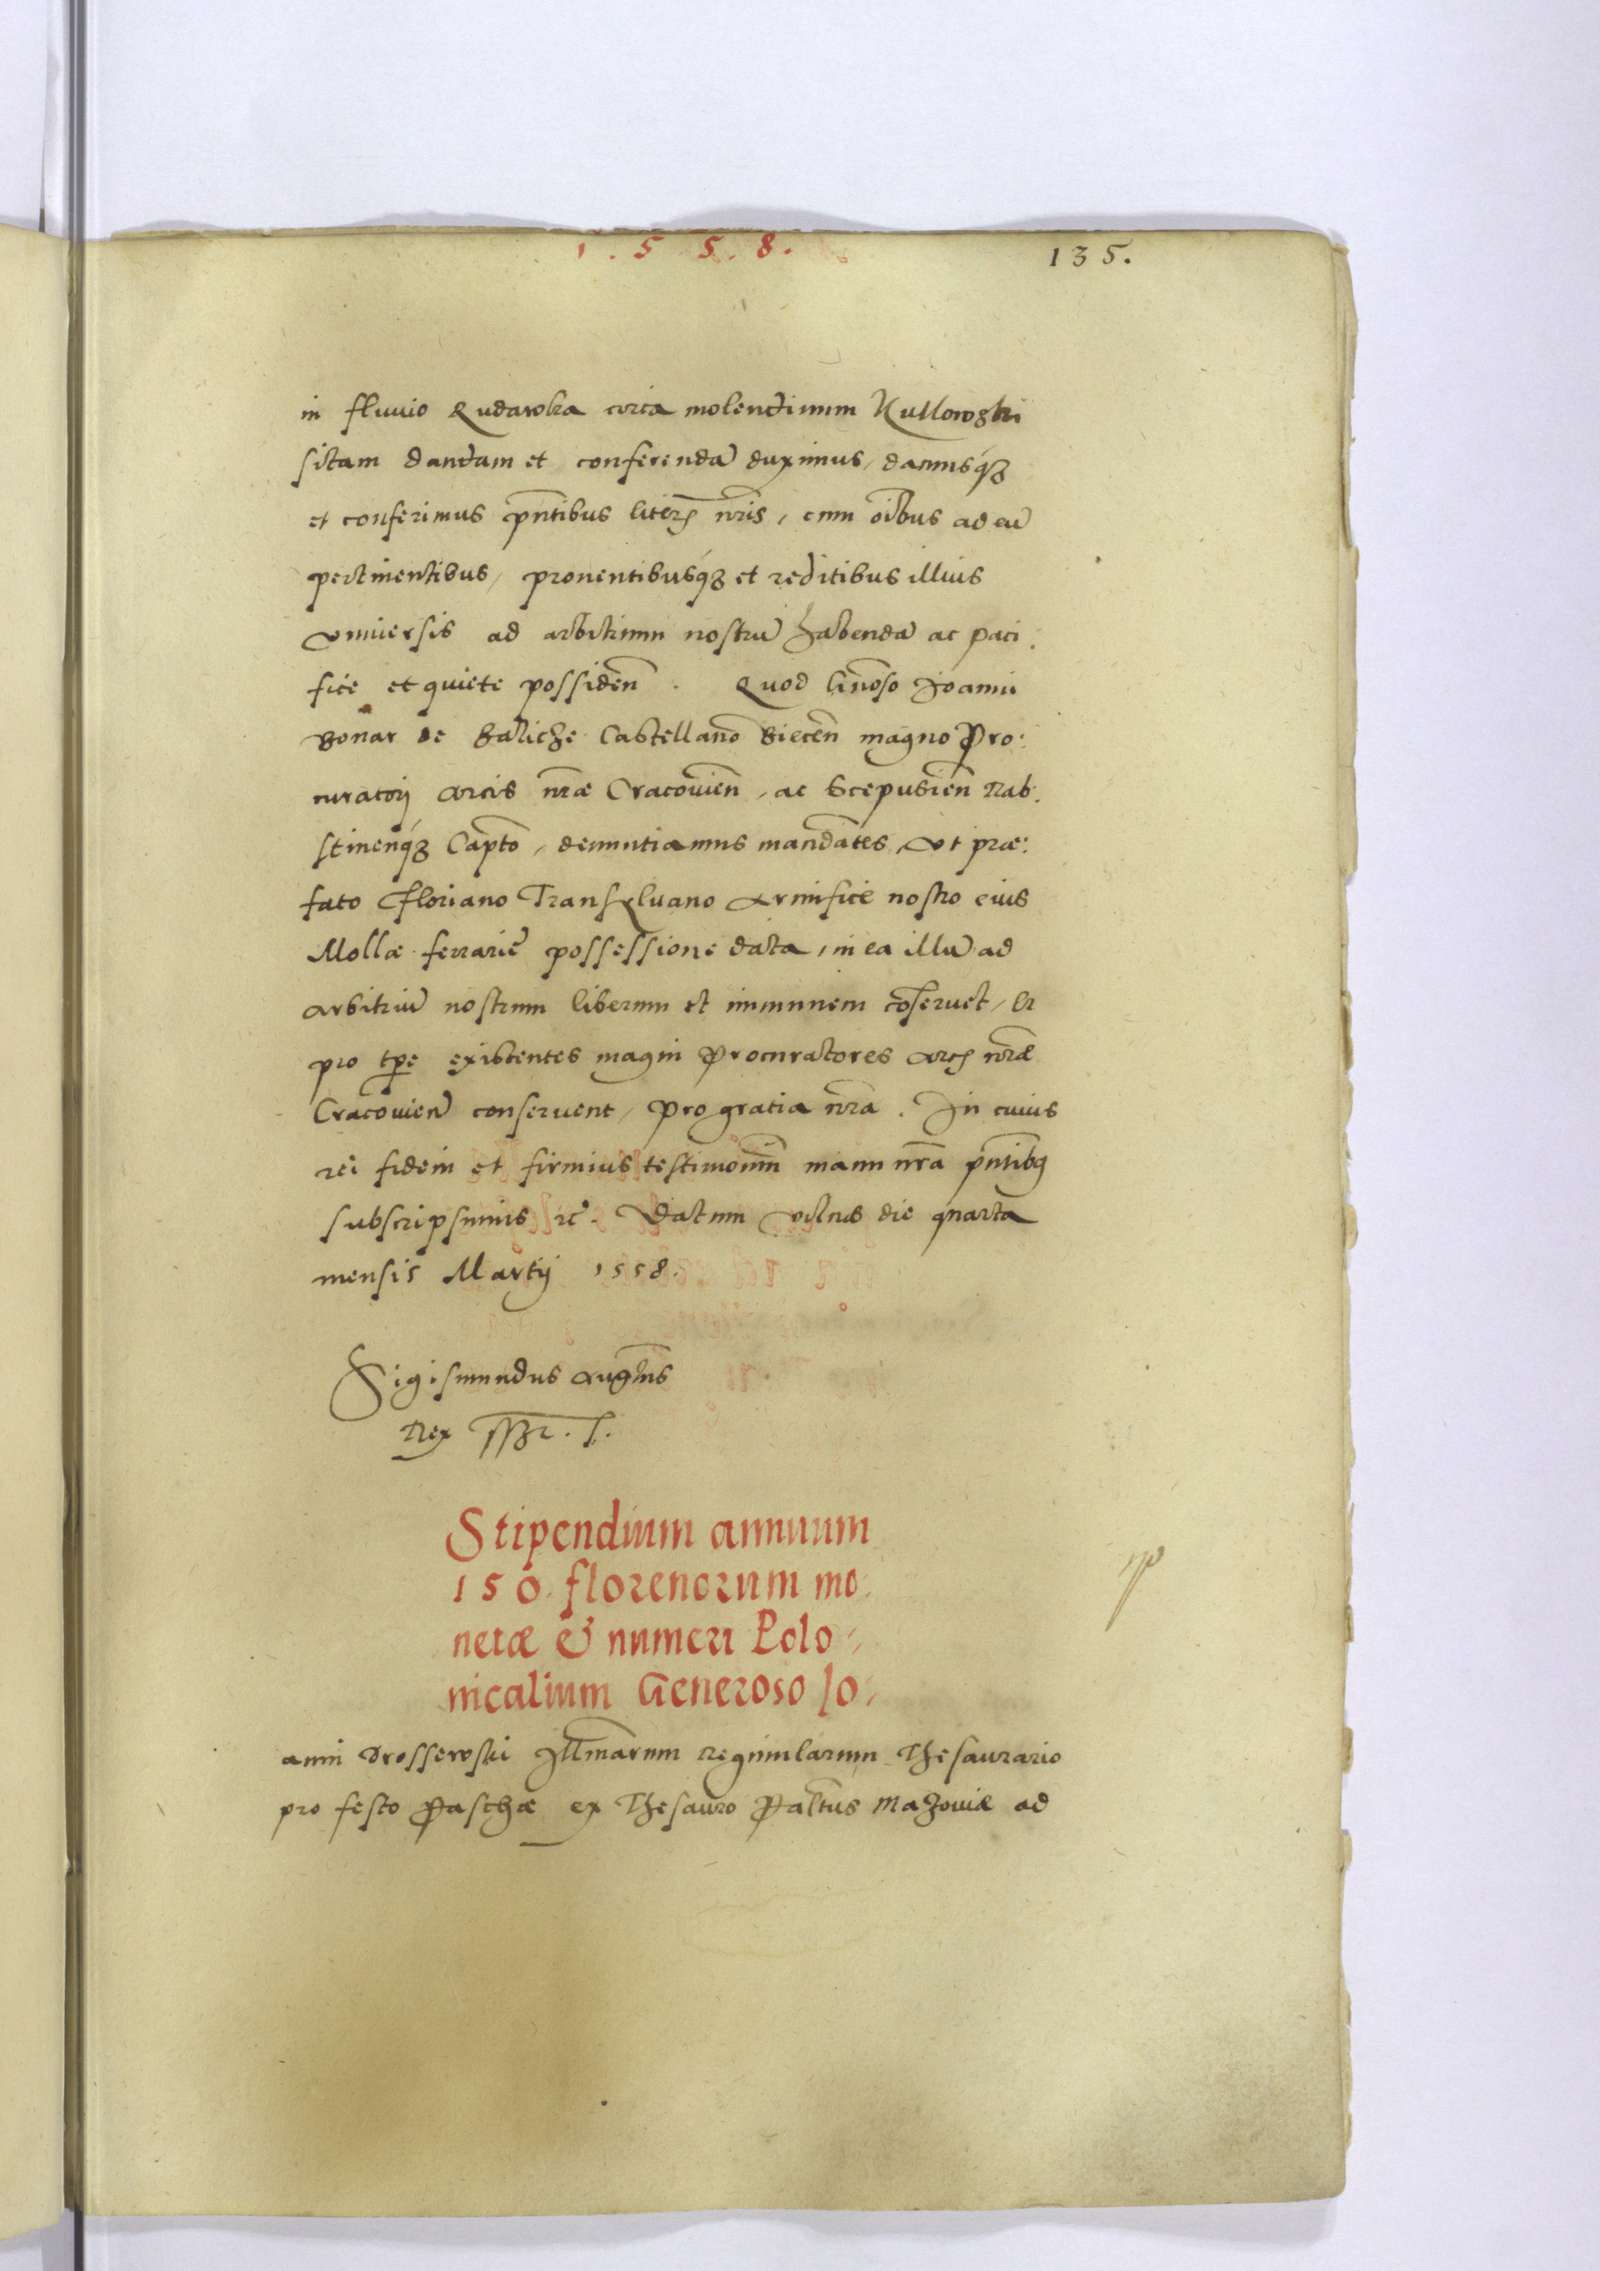 1.5.5.8.
135.
in fluvio Rudawka circa molendinum Kullowski
sitam dandam et conferendā duximus, damusq́ꝫ
et conferimus pñtibus literis nr̃is, cum oĩbus ad eā
pertinentibus, provenentibusq́ꝫ et reditibus illius
universis ad arbitrium nostrū habendā ac paci:
fice et quiete possiden̄. Quod Gñoso Joanni
Bonar de Balicze Castellano Biecen̄ magno Pro:
curatorij Arcis nr̃ae Cracovien̄, ac Scepusien̄ Rab:
stinenq́ꝫ Capto, denuntiamus mandantes, ut prae:
fato Floriano Transylvano Armifice nostro eius
Mollae ferrarie possessione data, in ea illū ad
arbitriū nostrum liberum et immunem cōservet, Et
pro tpe existentes magni Procuratores Arcis nr̃ae
Cracovien̄ conservent, pro gratia nr̃a. In cuius
rei fidem et firmius testimoniū manu nr̃a pñtibꝫ
subscripsimus etc. Datum Vilnae die quarta
mensis Martij 1558.
Sigismundus Augtus
Rex sspt.
Stipendium annuum
150. florenorum mo:
netæ & numeri Polo:
nicalium Generoso Io:
anni Drossewski Illmarum Reginularum Thesaurario
pro festo Paschae ex Thesauro Paltus Mazoviae ad